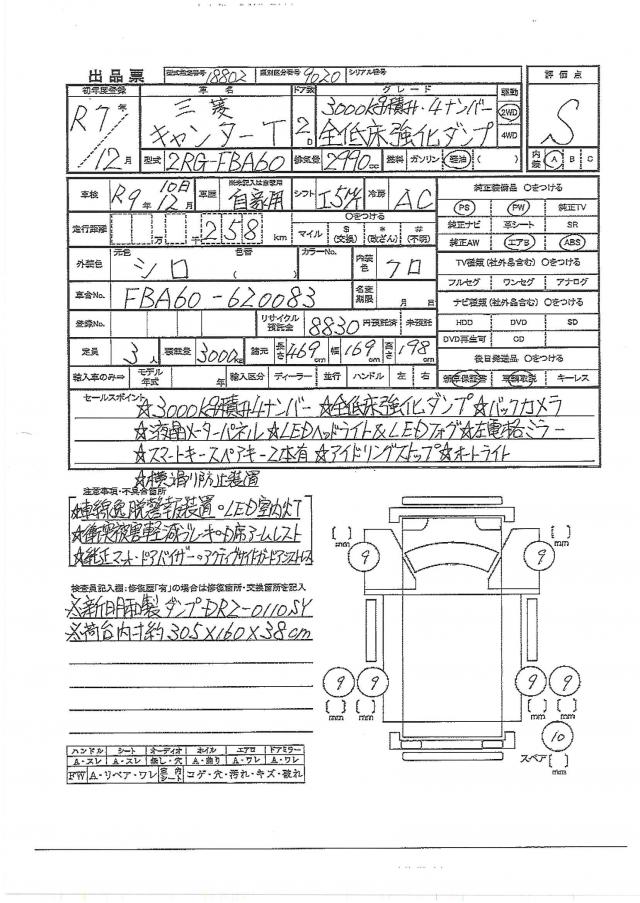 出品票 型式指定番号 18802 類別区分番号 9020 シリアル番号
初年度登録 車名 ドア数 グレード 駆動 評価点
R7年 三菱 2D 3000kg積載・4ナンバー 2WD S
12月 キャンターT 全低床強化ダンプ 4WD
型式 2RG-FBA60 排気量 2990cc 燃料 ガソリン 軽油 ( ) 内装 A B C
車検 R9年 10日 12月 車歴 自家用 シフト I5 冷房 AC 純正装備品 ○をつける
PS PW 純正TV
走行距離 万 千 258 km ○をつける
マイル S(交換) *(改ざん) #(不明) 純正ナビ 革シート SR
純正AW エアB ABS
外装色 元色 シロ 色替 ( ) カラーNo. 内装色 クロ TV種類(社外品含む) ○をつける
フルセグ ワンセグ アナログ
車台No. FBA60-620083 名変期限 月 日 ナビ種類(社外品含む) ○をつける
登録No. リサイクル預託金 8830 円預託済 未預託 HDD DVD SD
DVD再生可 CD
定員 3人 積載量 3000kg 諸元 長さ 469cm 幅 169cm 高さ 198cm 後日発送品 ○をつける
輸入車のみ⇒ モデル年式 年 輸入区分 ディーラー 並行 ハンドル 左 右 新車保証書 車輌取説 キーレス
セールスポイント
☆3000kg積4ナンバー ☆全低床強化ダンプ ☆バックカメラ
☆液晶メーターパネル ☆LEDヘッドライト&LEDフォグ ☆左電格ミラー
☆スマートキースペアキー2本有 ☆アイドリングストップ ☆オートライト
☆横滑り防止装置
注意事項・不具合箇所
☆車線逸脱警報装置。LED室内灯
☆衝突被害軽減ブレーキ。D席アームレスト
☆純正マット・ドアバイザー。アクティブサイドガードアシスト
検査員記入欄:修復歴「有」の場合は修復箇所・交換箇所を記入
※新明和製ダンプDR2-0110SY
※荷台内寸約305×160×38cm
[ ] mm 9 9 [ ] mm
9 9 9 9
[ ] mm [ ] mm [ ] mm [ ] mm
10
スペア [ ] mm
ハンドル シート オーディオ ホイル エアロ ドアミラー
A・スレ A・スレ 無し・穴 A・曲り A・ワレ A・ワレ
FW A・リペア・ワレ 室内シート コゲ・穴・汚れ・キズ・破れ